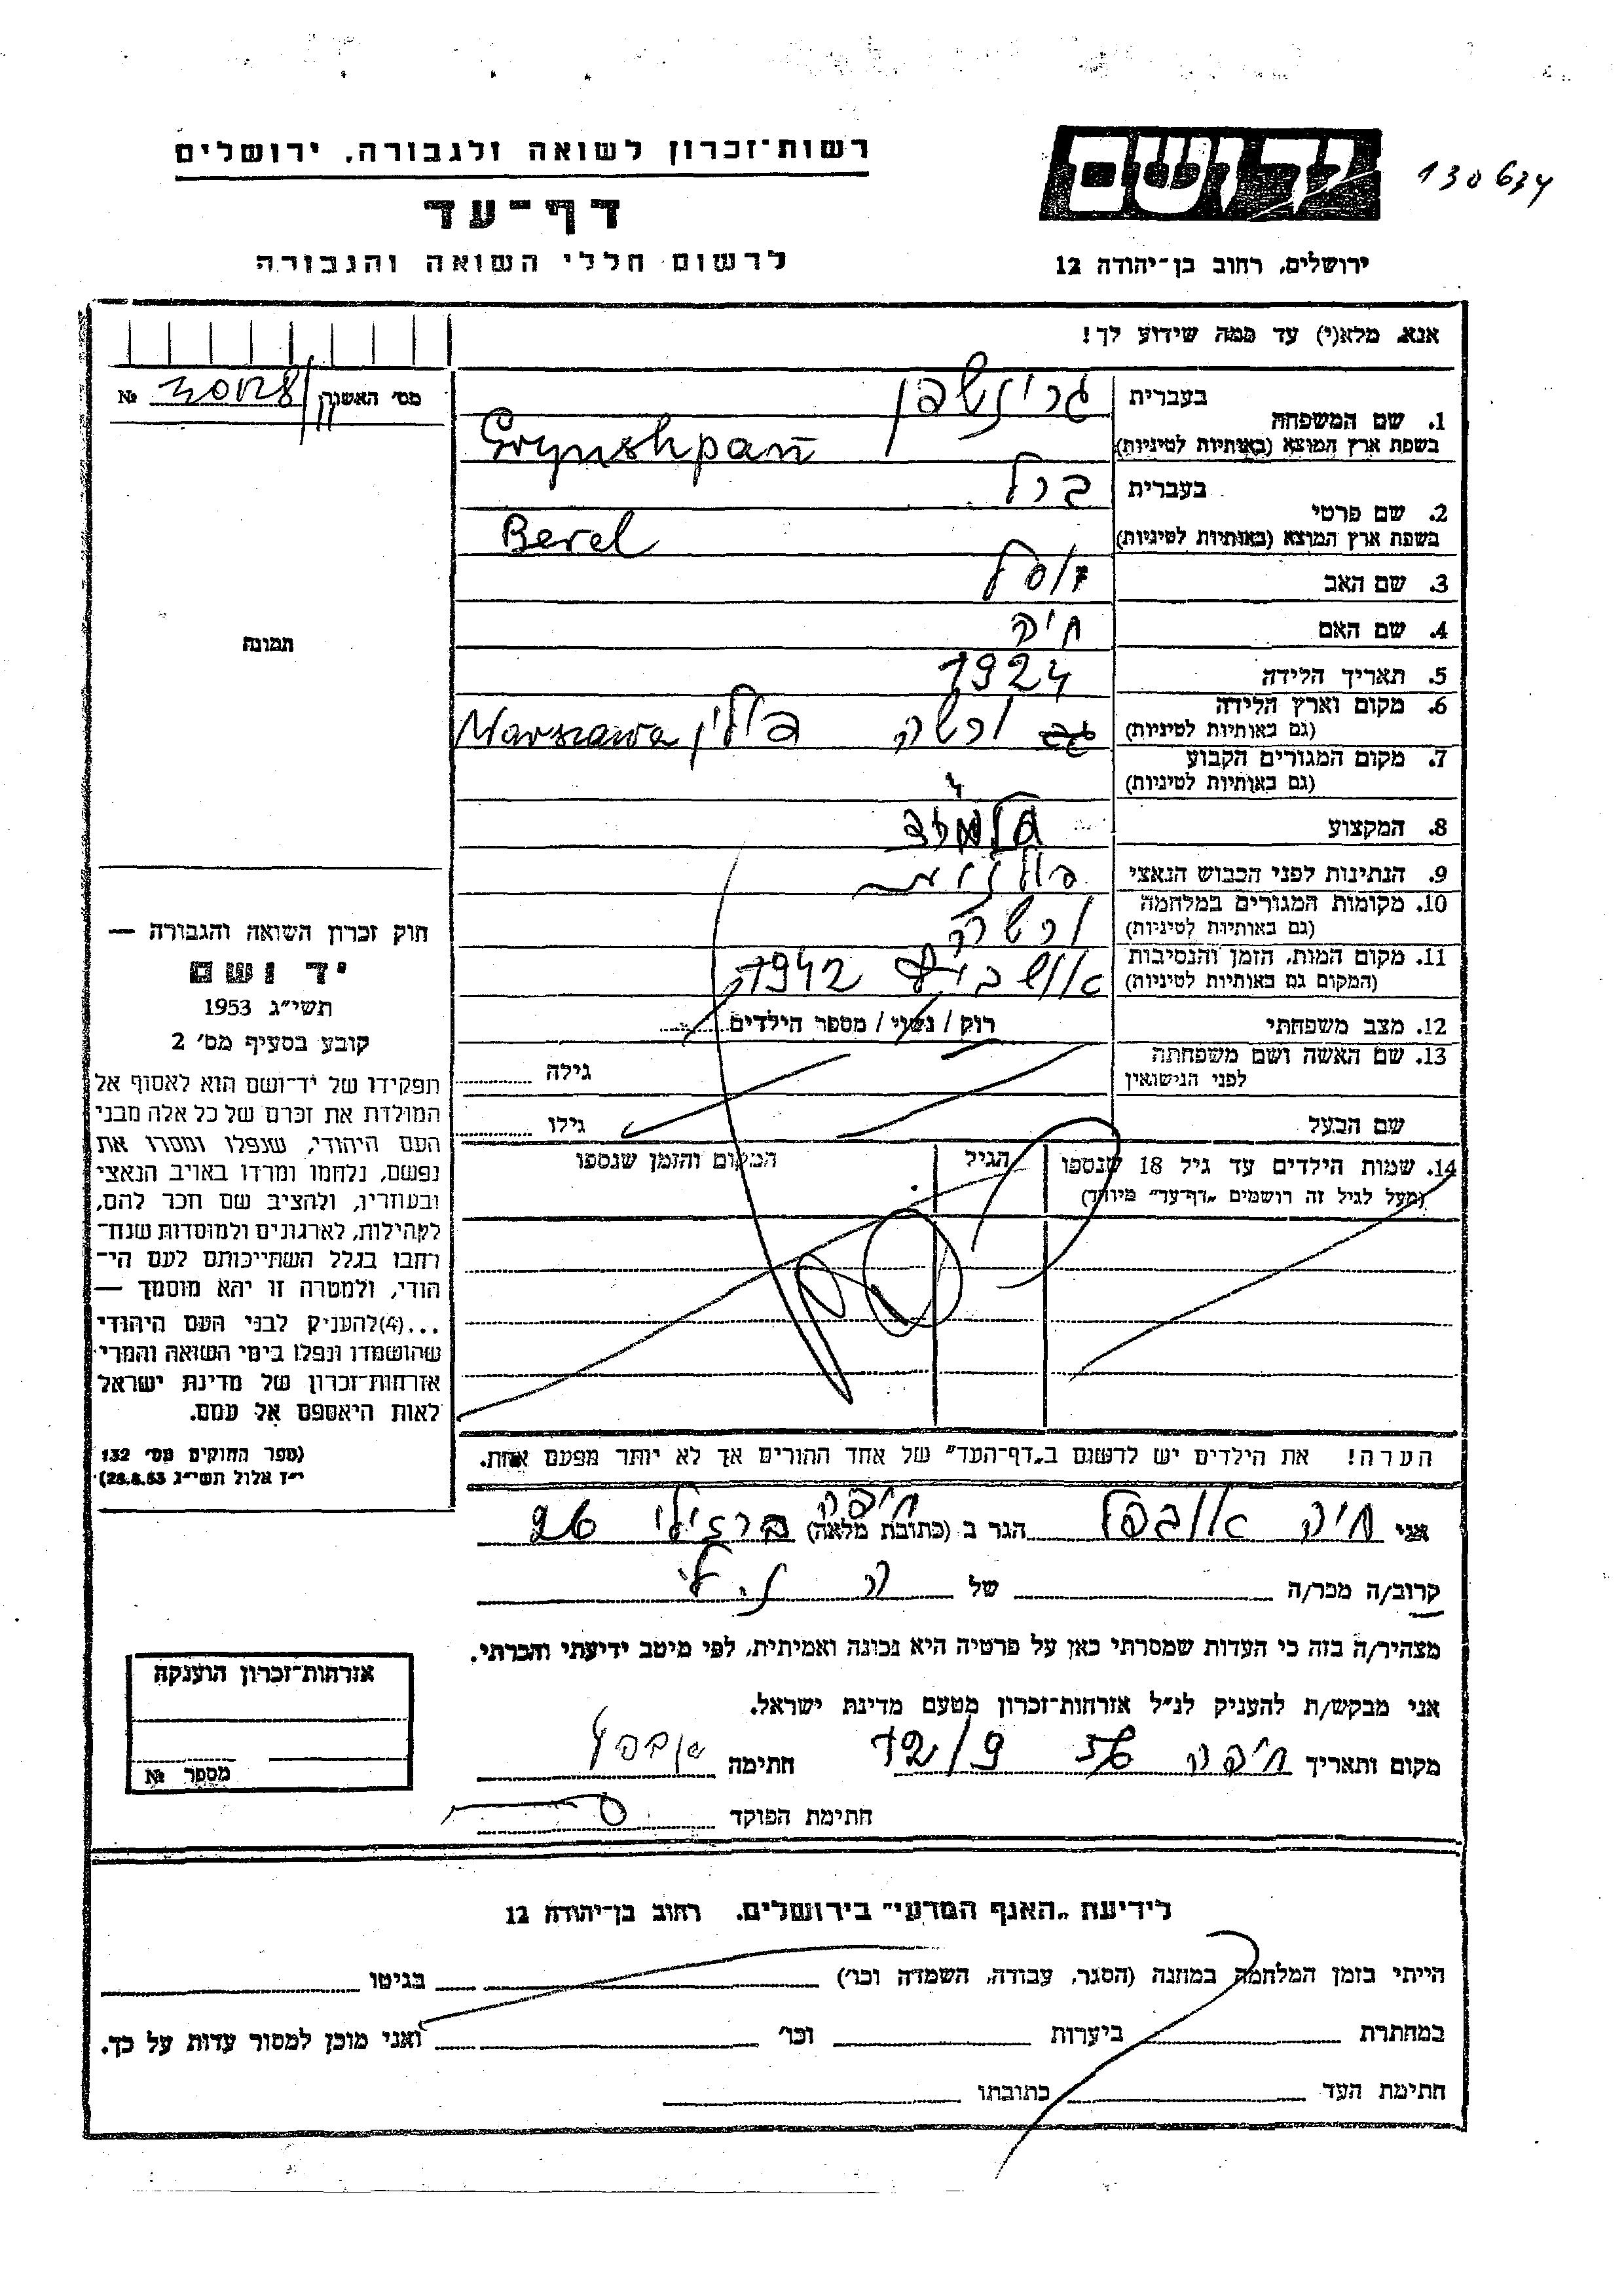 רשות־זכרון לשואה ולגבורה, ירושלים
יד ושם
130634
דף־עד
לרשום חללי השואה והגבורה
ירושלים, רחוב בן־יהודה 12
אנא, מלא(י) עד כמה שידוע לך!
מס' האשנה №
1. שם המשפחה
בעברית גרינשפן
בשפת ארץ המוצא (באותיות לטיניות) Grynshpan
2. שם פרטי
בעברית ברל
בשפת ארץ המוצא (באותיות לטיניות) Berel
3. שם האב יוסל
4. שם האם חיה
5. תאריך הלידה 1924
6. מקום וארץ הלידה
(גם באותיות לטיניות) ורשה פולין Warszawa
7. מקום המגורים הקבוע
(גם באותיות לטיניות)
8. המקצוע תלמיד
9. הנתינות לפני הכבוש הנאצי פולנית
10. מקומות המגורים במלחמה
(גם באותיות לטיניות) ורשה
11. מקום המות, הזמן והנסיבות
(המקום גם באותיות לטיניות) אושביץ 1942
12. מצב משפחתי רוק / נשוי / מספר הילדים
13. שם האשה ושם משפחתה
לפני הנישואין
גילה
שם הבעל
גילו
14. שמות הילדים עד גיל 18 שנספו
(מעל לגיל זה רושמים „דף־עד" מיוחד)
הגיל
המקום והזמן שנספו
תמונה
חוק זכרון השואה והגבורה —
יד ושם
תשי"ג 1953
קובע בסעיף מס' 2
תפקידו של יד־ושם הוא לאסוף אל
המולדת את זכרם של כל אלה מבני
העם היהודי, שנפלו ומסרו את
נפשם, נלחמו ומרדו באויב הנאצי
ובעוזריו, ולהציב שם וזכר להם,
לקהילות, לארגונים ולמוסדות שנח־
רחבו בגלל השתייכותם לעם הי־
הודי, ולמטרה זו יהא מוסמך —
...(4)להעניק לבני העם היהודי
שהושמדו ונפלו בימי השואה והמרי
אזרחות־זכרון של מדינת ישראל
לאות היאספם אל עמם.
(ספר החוקים מס' 132
י"ז אלול תשי"ג 28.8.53)
הערה! את הילדים יש לרשום ב„דף־העד" של אחד ההורים אך לא יותר מפעם אחת.
אני חיה הגר ב (כתובת מלאה) חיפה ברזילי 26
קרוב/ה מכר/ה של
מצהיר/ה בזה כי העדות שמסרתי כאן על פרטיה היא נכונה ואמיתית, לפי מיטב ידיעתי והכרתי.
אני מבקש/ת להעניק לנ"ל אזרחות־זכרון מטעם מדינת ישראל.
מקום ותאריך חיפה 12/9 56 חתימה
חתימת הפוקד
אזרחות־זכרון הוענקה
מספר №
לידיעת „האגף המדעי" בירושלים. רחוב בן־יהודה 12
הייתי בזמן המלחמה במחנה (הסגר, עבודה, השמדה וכו') בגיטו
במחתרת ביערות וכו' ואני מוכן למסור עדות על כך.
חתימת העד כתובתו